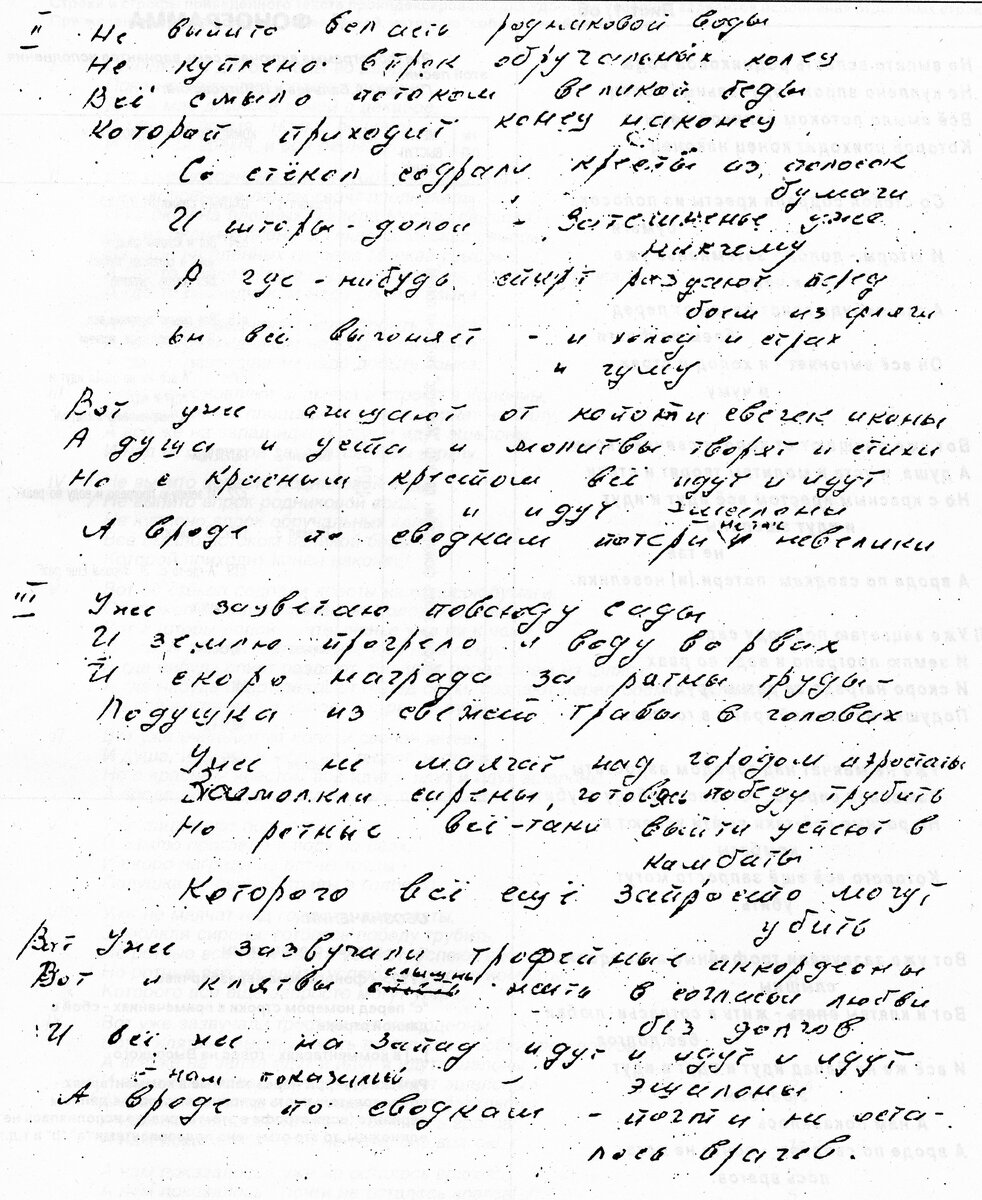 II Не выпито всласть родниковой воды
Не куплено впрок обручальных колец
Всё смыло потоком великой беды
Которой приходит конец наконец
Со стёкол содрали кресты из полосок
бумаги
И шторы - долой - Затемненье уже
ни к чему
А где-нибудь спирт раздают перед
боем из фляги
Он всё выгоняет - и холод и страх
и чуму
Вот уже очищают от копоти свечек иконы
А душа и уста и молитвы творят и стихи
Но с красным крестом всё идут и идут
и идут эшелоны
не так
А вроде по сводкам потери и невелики
III Уже зацветаю повсюду сады
И землю прогрело и воду во рвах
И скоро награда за ратны труды -
Подушка из свежей травы в головах
Уже не маячат над городом аэростаты
Замолкли сирены, готовясь победу трубить
Но ротные всё-таки выйти успеют в
комбаты
Которого всё ещё запросто могут
убить
Вот уже зазвучали трофейные аккордеоны
слышны
Вот и клятвы жить в согласьи любви
без долгов
И всё же на запад идут и идут и идут
эшелоны
А нам показалось
А вроде по сводкам - почти не оста-
лось врагов.